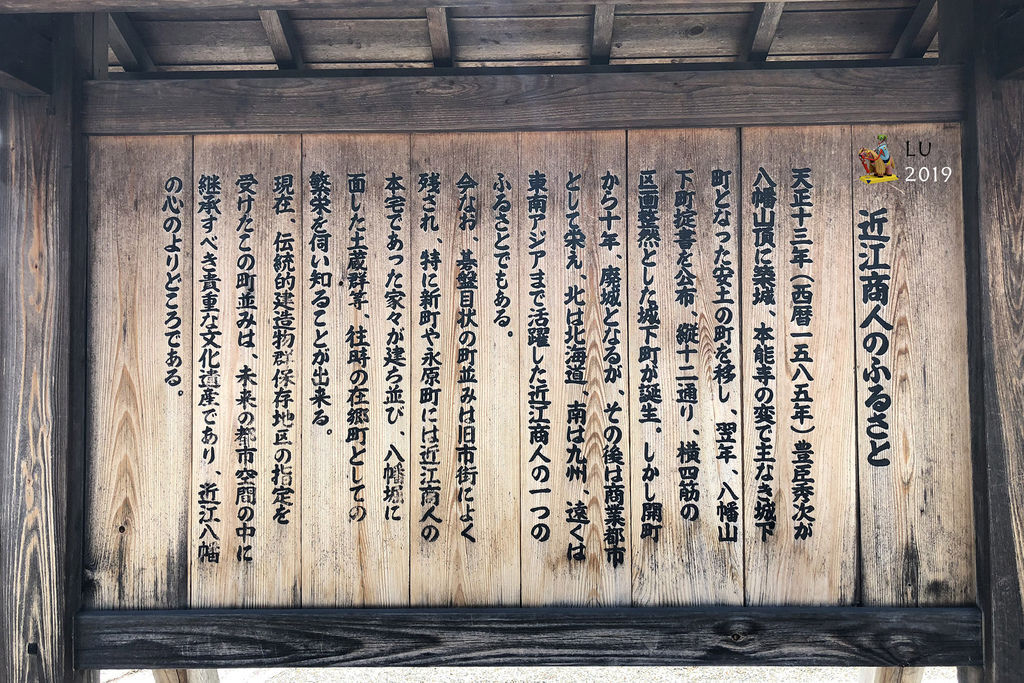 LU
2019
近江商人のふるさと
天正十三年(西暦一五八五年)豊臣秀次が
八幡山頂に築城、本能寺の変で主なき城下
町となった安土の町を移し、翌年、八幡山
下町掟書を公布、縦十二通り、横四筋の
区画整然とした城下町が誕生。しかし開町
から十年、廃城となるが、その後は商業都市
として栄え、北は北海道、南は九州、遠くは
東南アジアまで活躍した近江商人の一つの
ふるさとでもある。
今なお、碁盤目状の町並みは旧市街によく
残され、特に新町や永原町には近江商人の
本宅であった家々が建ち並び、八幡堀に
面した土蔵群等、往時の在郷町としての
繁栄を伺い知ることが出来る。
現在、伝統的建造物群保存地区の指定を
受けたこの町並みは、未来の都市空間の中に
継承すべき貴重な文化遺産であり、近江八幡
の心のよりどころである。